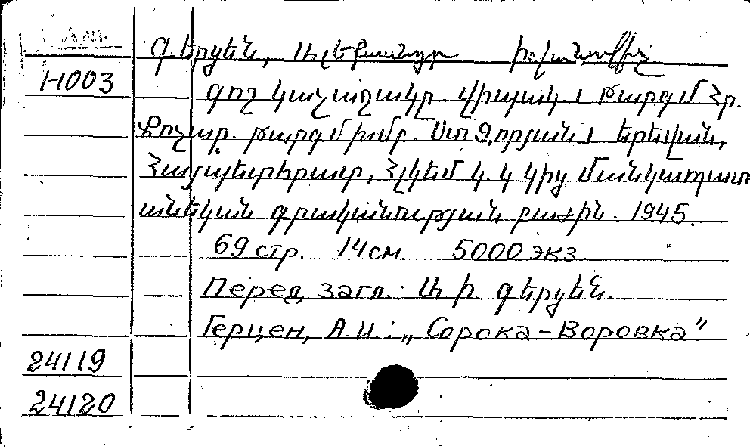 Գերցեն, Ալեքսանդր Իվանովիչ
1-1003
Գող կաչաղակը. Վիպակ: Թարգմ Հր.
Քոչար. Թարգմ խմբ. Ստ Զորյան: Երեվան,
Հայպետհրատ, ՀԼԿԵՄ Կ. Կ կից Մանկապատ
անեկան գրականության բաժին. 1945.
69 стр. 14 см. 5000 экз
Перед загл.: Ա Ի Գերցեն.
Герцен, А.И.: „Сорока-Воровка"
24119
24120